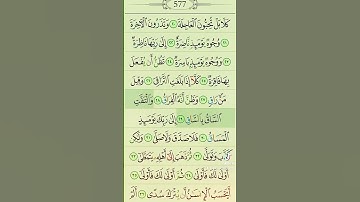 577
كَلَّا بَلْ تُحِبُّونَ ٱلْعَاجِلَةَ ٢٠ وَتَذَرُونَ ٱلْآخِرَةَ
٢١ وُجُوهٌ يَوْمَئِذٍ نَّاضِرَةٌ ٢٢ إِلَىٰ رَبِّهَا نَاظِرَةٌ
٢٣ وَوُجُوهٌ يَوْمَئِذٍ بَاسِرَةٌ ٢٤ تَظُنُّ أَن يُفْعَلَ
بِهَا فَاقِرَةٌ ٢٥ كَلَّا إِذَا بَلَغَتِ ٱلتَّرَاقِىَ ٢٦ وَقِيلَ
مَنْ رَاقٍ ٢٧ وَظَنَّ أَنَّهُ ٱلْفِرَاقُ ٢٨ وَٱلْتَفَّتِ
ٱلسَّاقُ بِٱلسَّاقِ ٢٩ إِلَىٰ رَبِّكَ يَوْمَئِذٍ
ٱلْمَسَاقُ ٣٠ فَلَا صَدَّقَ وَلَا صَلَّىٰ ٣١ وَلَٰكِن
كَذَّبَ وَتَوَلَّىٰ ٣٢ ثُمَّ ذَهَبَ إِلَىٰٓ أَهْلِهِۦ يَتَمَطَّىٰٓ ٣٣
أَوْلَىٰ لَكَ فَأَوْلَىٰ ٣٤ ثُمَّ أَوْلَىٰ لَكَ فَأَوْلَىٰٓ ٣٥
أَيَحْسَبُ ٱلْإِنسَٰنُ أَن يُتْرَكَ سُدًى ٣٦ أَلَمْ